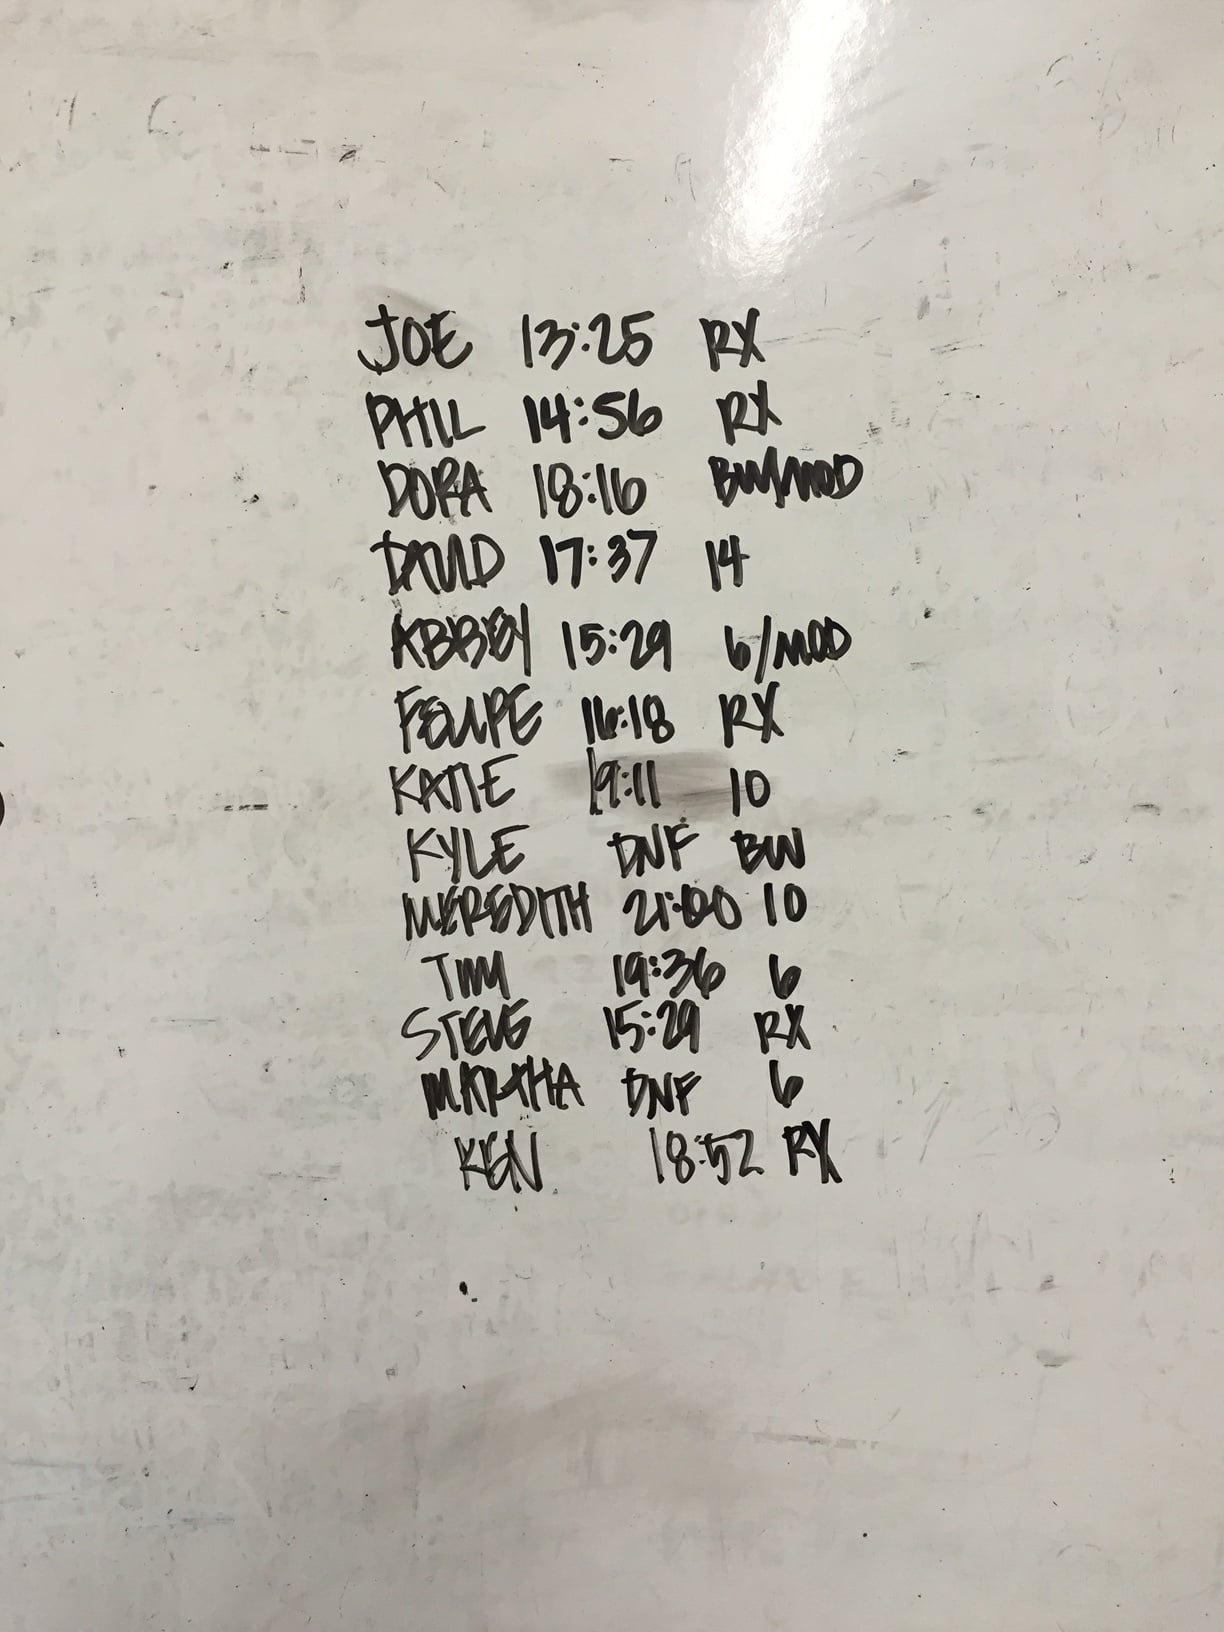 JOE 13:25 RX
PHIL 14:56 RX
DORA 18:16 BW/MOD
DAVID 17:37 14
ABBEY 15:29 6/MOD
FELIPE 16:18 RX
KATIE 19:11 10
KYLE DNF BW
MEREDITH 21:00 10
TIM 19:36 6
STEVE 15:29 RX
MARTHA DNF 6
KEN 18:52 RX